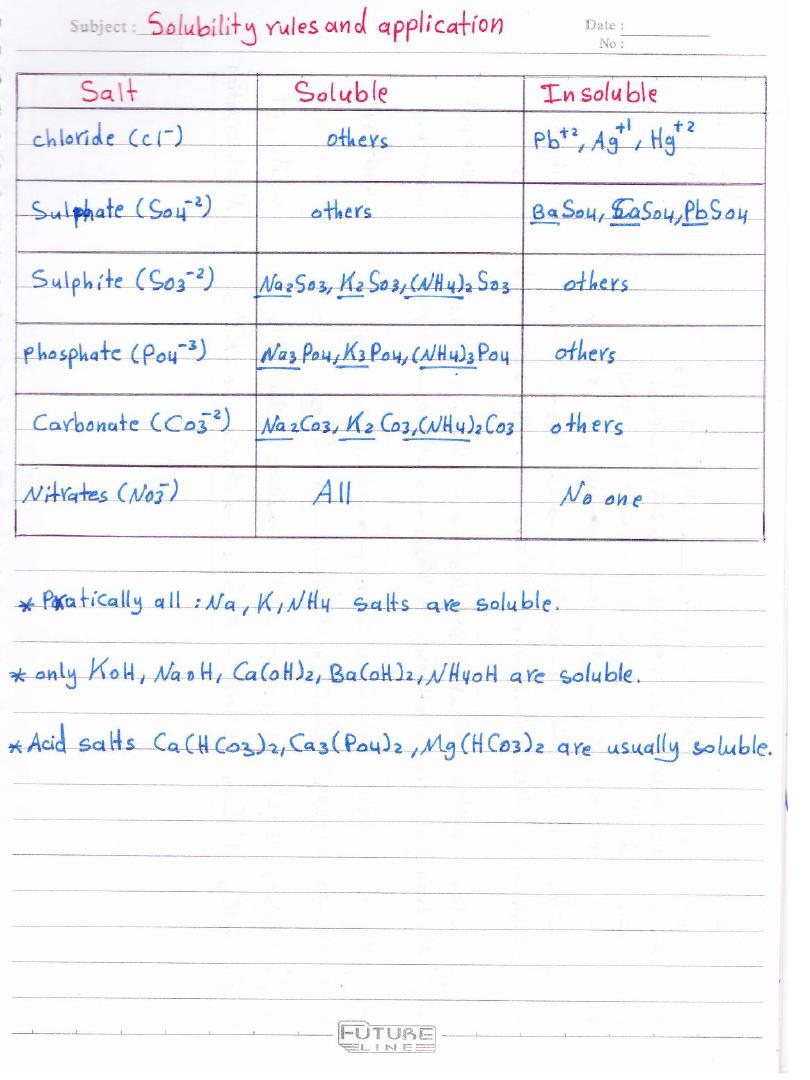 Subject : Solubility rules and application
Date :
No :
Salt Soluble Insoluble
chloride (Cl⁻) others Pb⁺², Ag⁺¹, Hg⁺²
Sulphate (So₄⁻²) others BaSo₄, CaSo₄, PbSo₄
Sulphite (So₃⁻²) Na₂So₃, K₂So₃, (NH₄)₂So₃ others
phosphate (Po₄⁻³) Na₃Po₄, K₃Po₄, (NH₄)₃Po₄ others
Carbonate (Co₃⁻²) Na₂Co₃, K₂Co₃, (NH₄)₂Co₃ others
Nitrates (No₃⁻) All No one
* Pratically all : Na, K, NH₄ salts are soluble.
* only KoH, NaoH, Ca(oH)₂, Ba(oH)₂, NH₄oH are soluble.
* Acid salts Ca(HCo₃)₂, Ca₃(Po₄)₂, Mg(HCo₃)₂ are usually soluble.
FUTURE
LINE